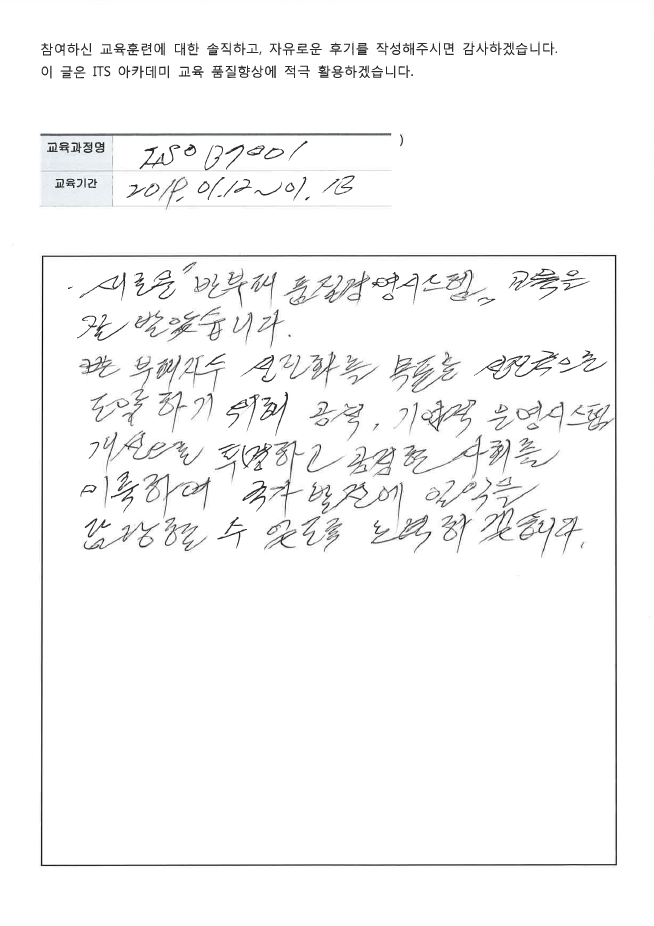 참여하신 교육훈련에 대한 솔직하고, 자유로운 후기를 작성해주시면 감사하겠습니다.
이 글은 ITS 아카데미 교육 품질향상에 적극 활용하겠습니다.
)
교육과정명 ISO 37001
교육기간 2019. 01. 12 ~ 01. 13
· 새로운 "반부패 품질경영시스템" 교육을
잘 받았습니다.
부패지수 선진화를 목표로 선진국으로
도약하기 위해 공적, 기업적 운영시스템
개선으로 투명하고 공정한 사회를
이룩하여 국가 발전에 일익을
감당할 수 있도록 노력하겠습니다.